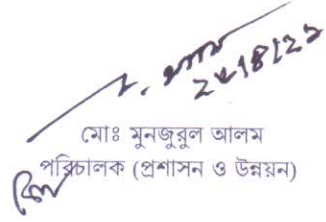 ২৮/৪/২১
মোঃ মুনজুরুল আলম
পরিচালক (প্রশাসন ও উন্নয়ন)